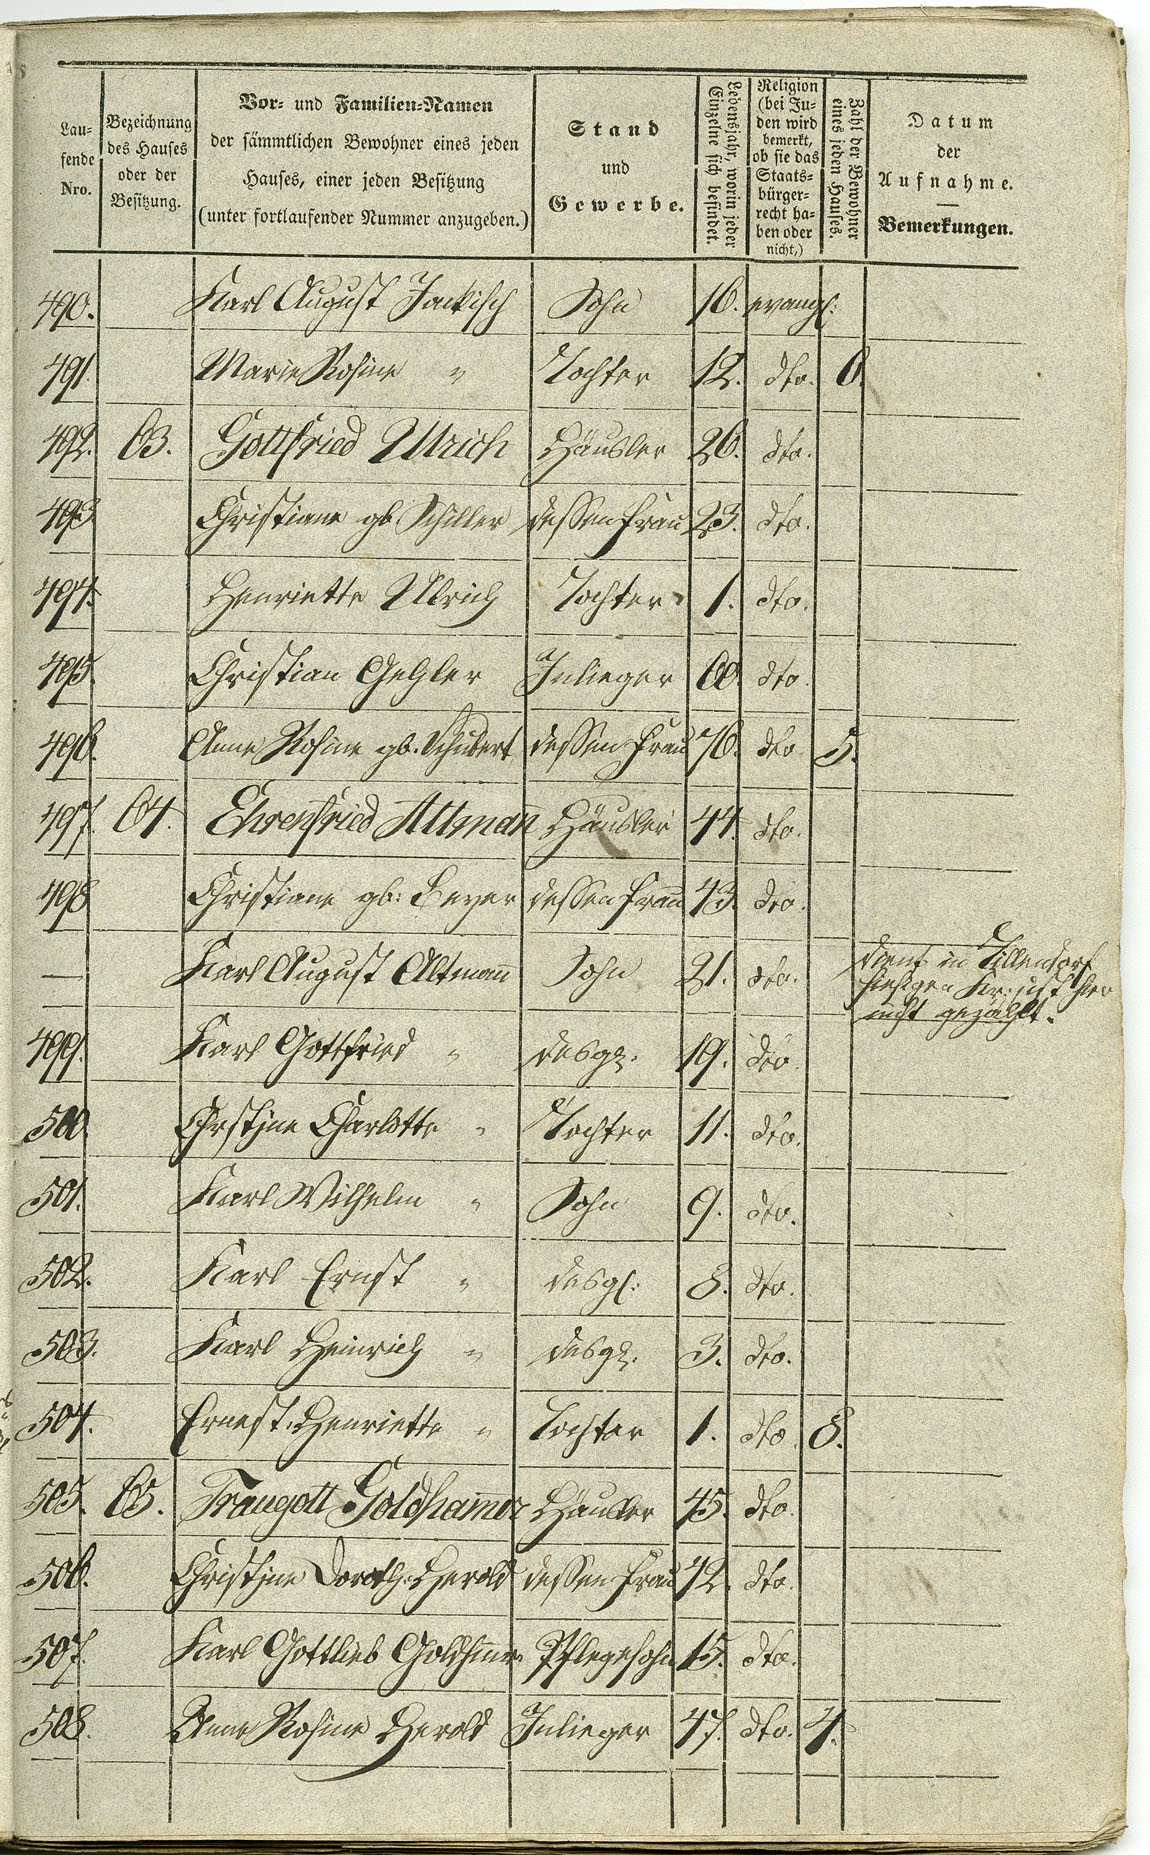 Lau-
fende
Nro.
Bezeichnung
des Hauses
oder der
Besitzung.
Vor- und Familien-Namen
der sämmtlichen Bewohner eines jeden
Hauses, einer jeden Besitzung
(unter fortlaufender Nummer anzugeben.)
Stand
und
Gewerbe.
Lebensjahr, worin jeder
Einzelne sich befindet.
Religion
(bei Ju-
den wird
bemerkt,
ob sie das
Staats-
bürger-
recht ha-
ben oder
nicht,)
Zahl der Bewohner
eines jeden Hauses.
Datum
der
Aufnahme.
Bemerkungen.
490. Karl August Jackisch Sohn 16. evangl:
491. Marie Rosine " Tochter 12. dto. 6.
492. 63. Gottfried Ullrich Häusler 26. dto.
493 Christiane gb. Schiller dessen Frau 23. dto.
494. Henriette Ullrich Tochter 1. dto.
495. Christian Inlieger 60 dto.
496. Anne Rosine gb. Schubert dessen Frau 76. dto 5.
497. 64. Ehrenfried Altman̄ Häusler 44. dto.
498 Christiane gb: Beyer dessen Frau 43. dto.
— Karl August Altman̄ Sohn 21. dto. dient in Tillendorf
hiesigen Kr: ist hier
nicht gezählt.
499. Karl Gottfried " desgl. 19. dto
500. Chrstjne Charlotte " Tochter 11. dto.
501. Karl Wilhelm " Sohn 9. dto.
502. Karl Ernst " desgl: 8. dto.
503. Karl Heinrich " desgl. 3. dto.
504. Ernest. Henriette " Tochter 1. dto. 8.
505. 65. Traugott Goldham̄er Häusler 45. dto.
506. Christjne Doroth. Herold dessen Frau 42. dto.
507. Karl Gottlieb Pflegesohn 15. dto.
508. Anne Rosine Herold Inlieger 47. dto. 4.